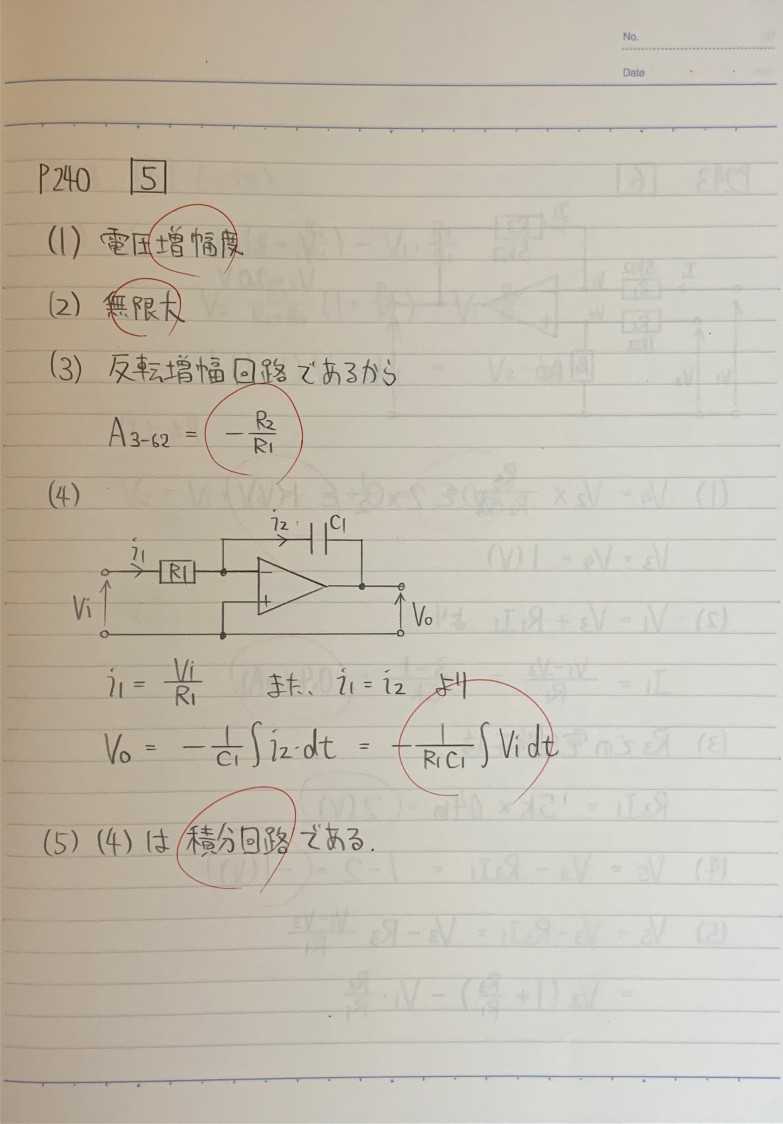 No.
Date
P240 5
(1) 電圧増幅度
(2) 無限大
(3) 反転増幅回路であるから
A3-62 = -R2/R1
(4)
i1 R1 i2 C1
Vi - + Vo
i1 = Vi/R1 また、i1 = i2 より
Vo = -1/C1 ∫i2・dt = -1/R1C1 ∫Vi dt
(5) (4)は積分回路である.